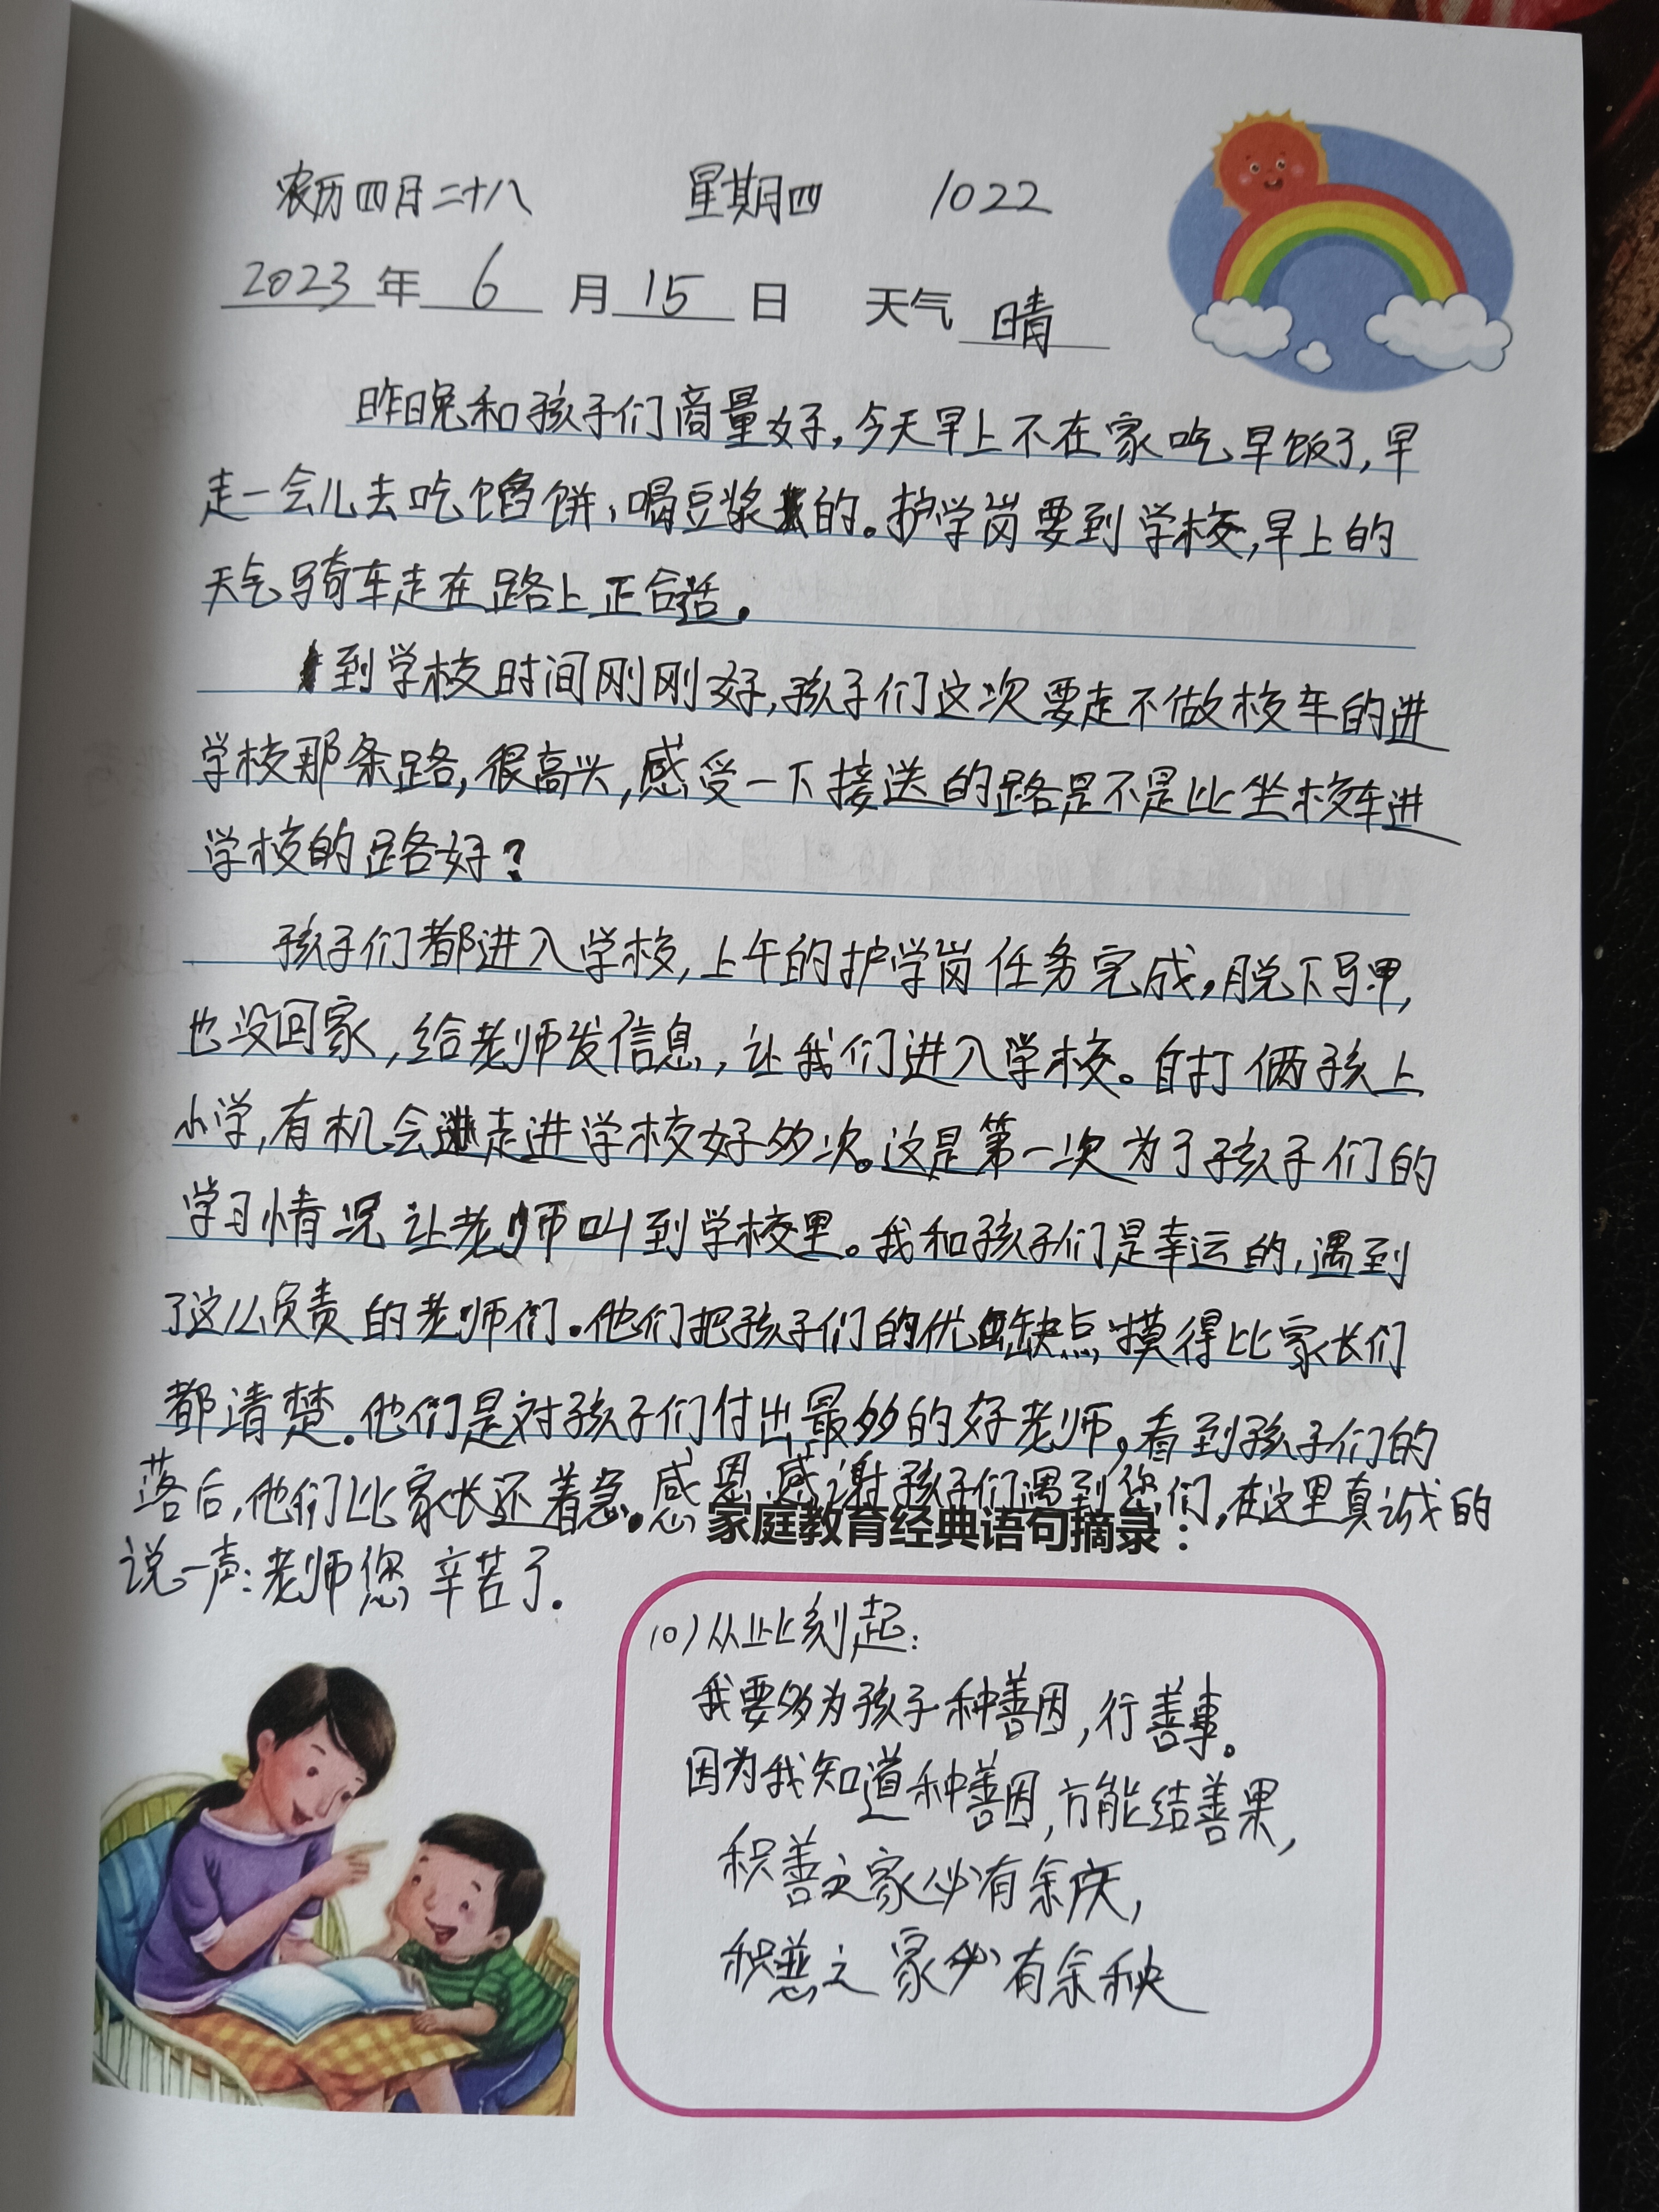 农历四月二十八 星期四 1022
2023年 6 月 15 日 天气 晴
昨晚和孩子们商量好,今天早上不在家吃早饭了,早
走一会儿去吃馅饼,喝豆浆的。护学岗要到学校,早上的
天气骑车走在路上正合适。
到学校时间刚刚好,孩子们这次要走不做校车的进
学校那条路,很高兴,感受一下接送的路是不是比坐校车进
学校的路好?
孩子们都进入学校,上午的护学岗任务完成,脱下马甲,
也没回家,给老师发信息,让我们进入学校。自打俩孩上
小学,有机会走进学校好多次。这是第一次为了孩子们的
学习情况让老师叫到学校里。我和孩子们是幸运的,遇到
了这么负责的老师们。他们把孩子们的优缺点摸得比家长们
都清楚。他们是对孩子们付出最多的好老师,看到孩子们的
落后,他们比家长还着急。感恩感谢孩子们遇到您们,在这里真诚的
家庭教育经典语句摘录:
说一声:老师您辛苦了.
10)从此刻起:
我要多为孩子种善因,行善事。
因为我知道种善因,方能结善果,
积善之家必有余庆,
积恶之家必有余秧